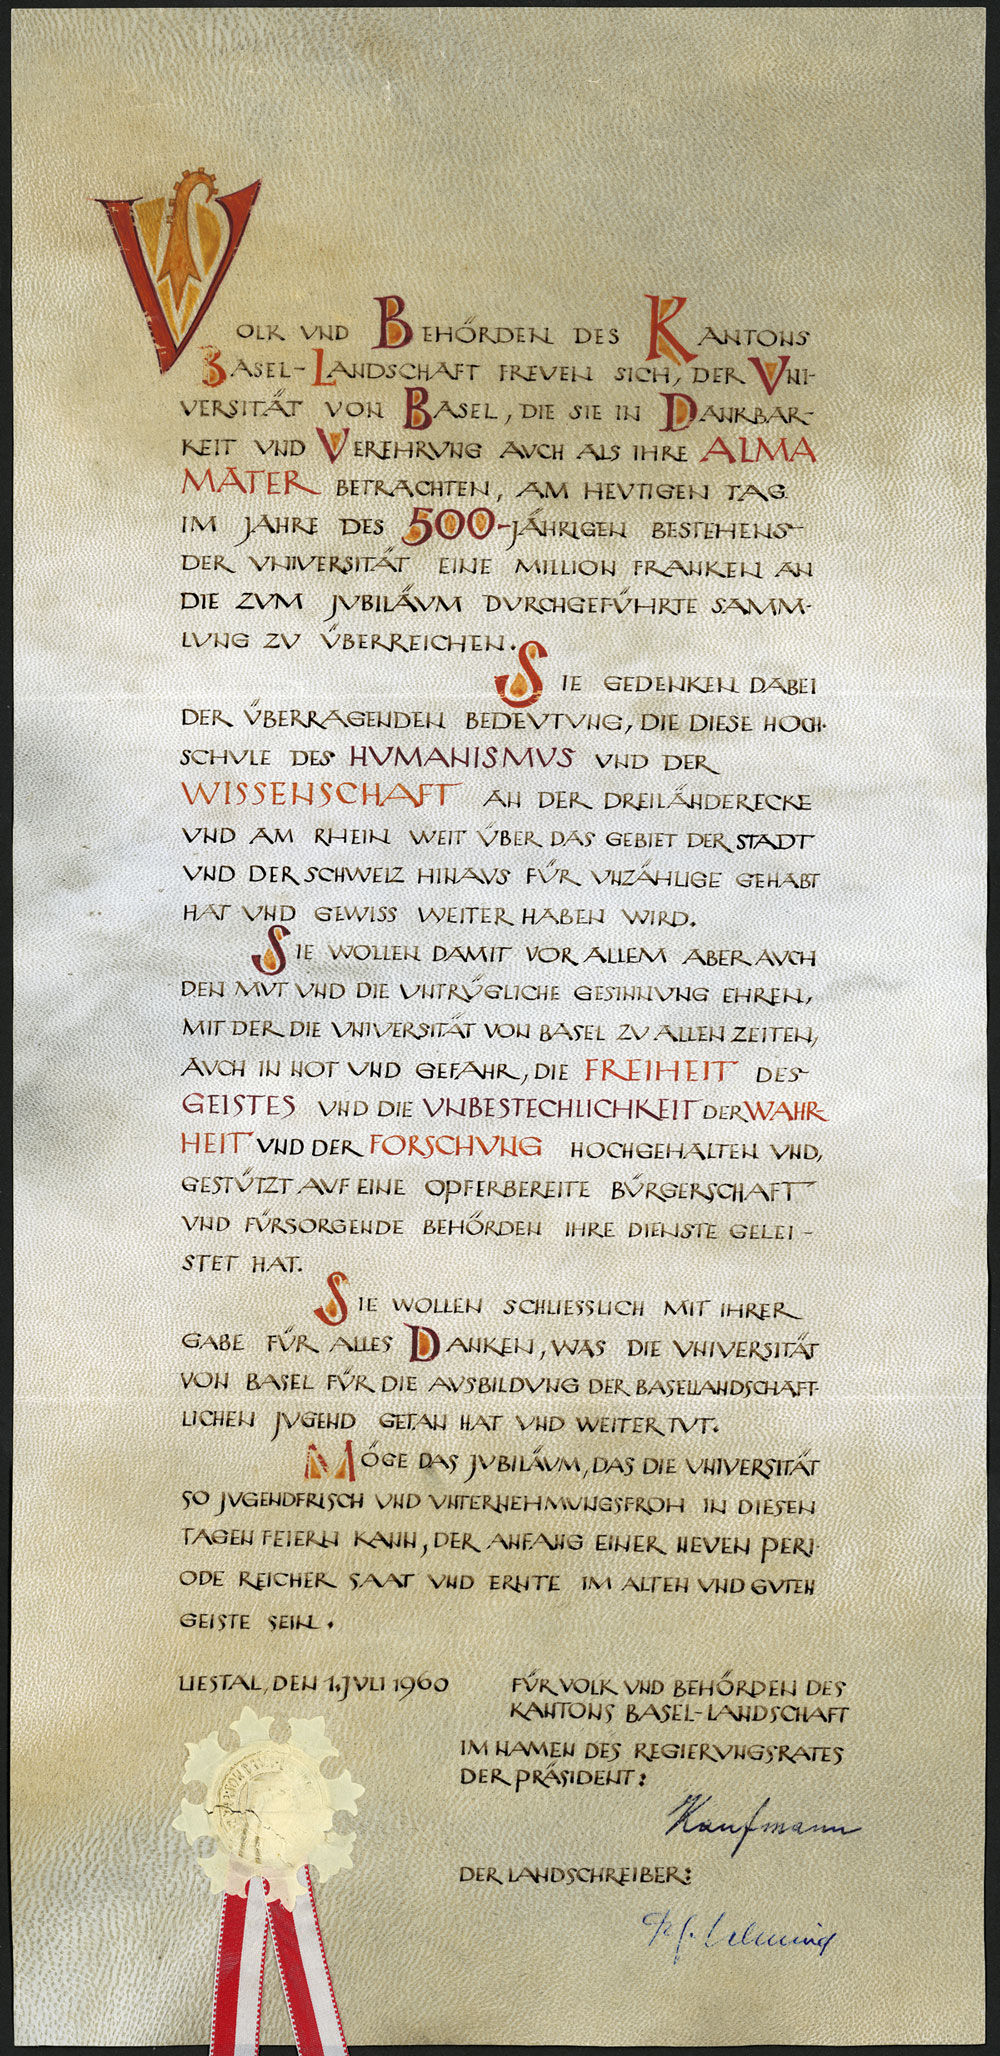 VOLK VND BEHÖRDEN DES KANTONS
BASEL-LANDSCHAFT FREVEN SICH, DER VNI-
VERSITÄT VON BASEL, DIE SIE IN DANKBAR-
KEIT VND VEREHRVNG AVCH ALS IHRE ALMA
MATER BETRACHTEN, AM HEVTIGEN TAG
IM JAHRE DES 500-JÄHRIGEN BESTEHENS
DER VNIVERSITÄT EINE MILLION FRANKEN AN
DIE ZVM JVBILÄVM DVRCHGEFÜHRTE SAMM-
LVNG ZV ÜBERREICHEN.
SIE GEDENKEN DABEI
DER ÜBERRAGENDEN BEDEVTVNG, DIE DIESE HOCH-
SCHVLE DES HVMANISMVS VND DER
WISSENSCHAFT AN DER DREILÄNDERECKE
VND AM RHEIN WEIT ÜBER DAS GEBIET DER STADT
VND DER SCHWEIZ HINAVS FÜR VNZÄHLIGE GEHABT
HAT VND GEWISS WEITER HABEN WIRD.
SIE WOLLEN DAMIT VOR ALLEM ABER AVCH
DEN MVT VND DIE VNTRÜGLICHE GESINNVNG EHREN,
MIT DER DIE VNIVERSITÄT VON BASEL ZV ALLEN ZEITEN,
AVCH IN NOT VND GEFAHR, DIE FREIHEIT DES
GEISTES VND DIE VNBESTECHLICHKEIT DER WAHR-
HEIT VND DER FORSCHVNG HOCHGEHALTEN VND,
GESTÜTZT AVF EINE OPFERBEREITE BÜRGERSCHAFT
VND FÜRSORGENDE BEHÖRDEN IHRE DIENSTE GELEI-
STET HAT.
SIE WOLLEN SCHLIESSLICH MIT IHRER
GABE FÜR ALLES DANKEN, WAS DIE VNIVERSITÄT
VON BASEL FÜR DIE AVSBILDVNG DER BASELLANDSCHAFT-
LICHEN JVGEND GETAN HAT VND WEITER TVT.
MÖGE DAS JVBILÄVM, DAS DIE VNIVERSITÄT
SO JVGENDFRISCH VND VNTERNEHMVNGSFROH IN DIESEN
TAGEN FEIERN KANN, DER ANFANG EINER NEVEN PERI-
ODE REICHER SAAT VND ERNTE IM ALTEN VND GVTEN
GEISTE SEIN.
LIESTAL, DEN 1. JVLI 1960
FÜR VOLK VND BEHÖRDEN DES
KANTONS BASEL-LANDSCHAFT
IM NAMEN DES REGIERVNGSRATES
DER PRÄSIDENT:
Kaufmann
DER LANDSCHREIBER: